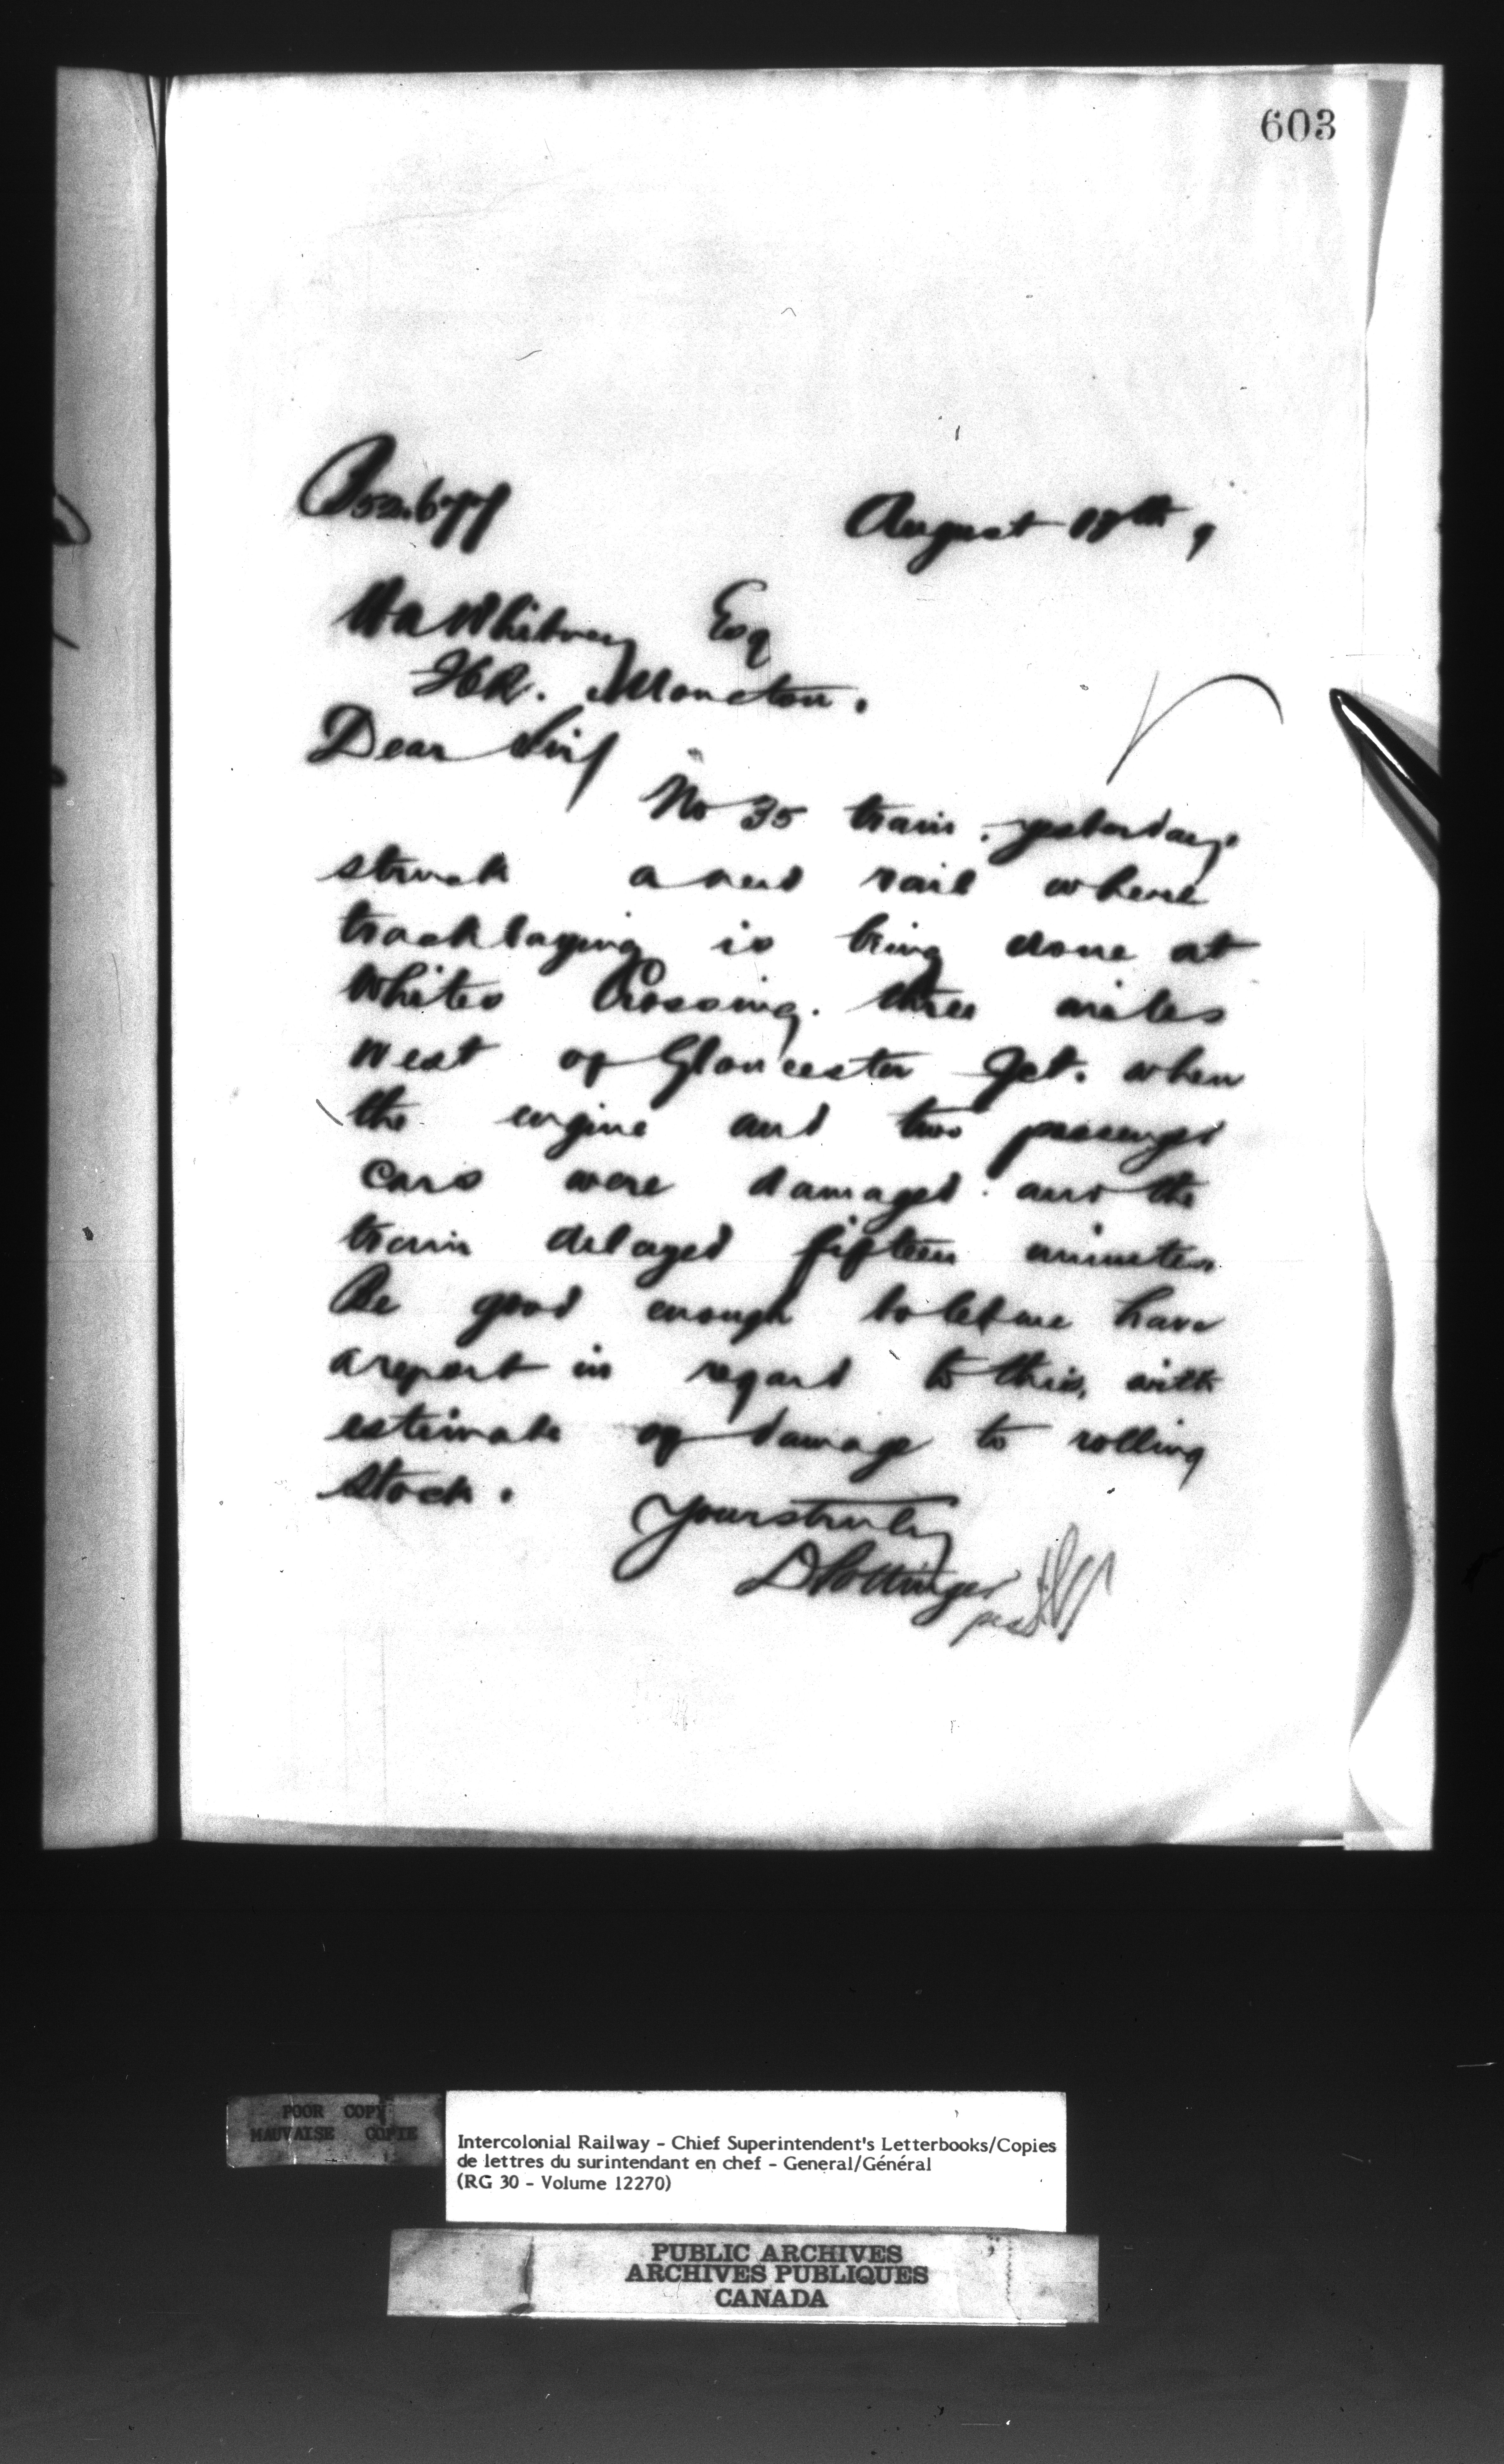 603
52.677
August 18th, 9
H A Whitney Esq
ICR. Moncton.
Dear Sir/
No 35 train yesterday
struck a new rail where
tracklaying is being done at
Whites Crossing. three miles
west of Gloucester Jct. when
the engine and two passenger
cars were damaged and the
train delayed fifteen minutes.
Be good enough to let me have
a report in regard to this, with
estimate of damage to rolling
stock.
Yours truly
D Pottinger
per
POOR COPY
MAUVAISE COPIE
Intercolonial Railway - Chief Superintendent's Letterbooks/Copies
de lettres du surintendant en chef - General/Général
(RG 30 - Volume 12270)
PUBLIC ARCHIVES
ARCHIVES PUBLIQUES
CANADA